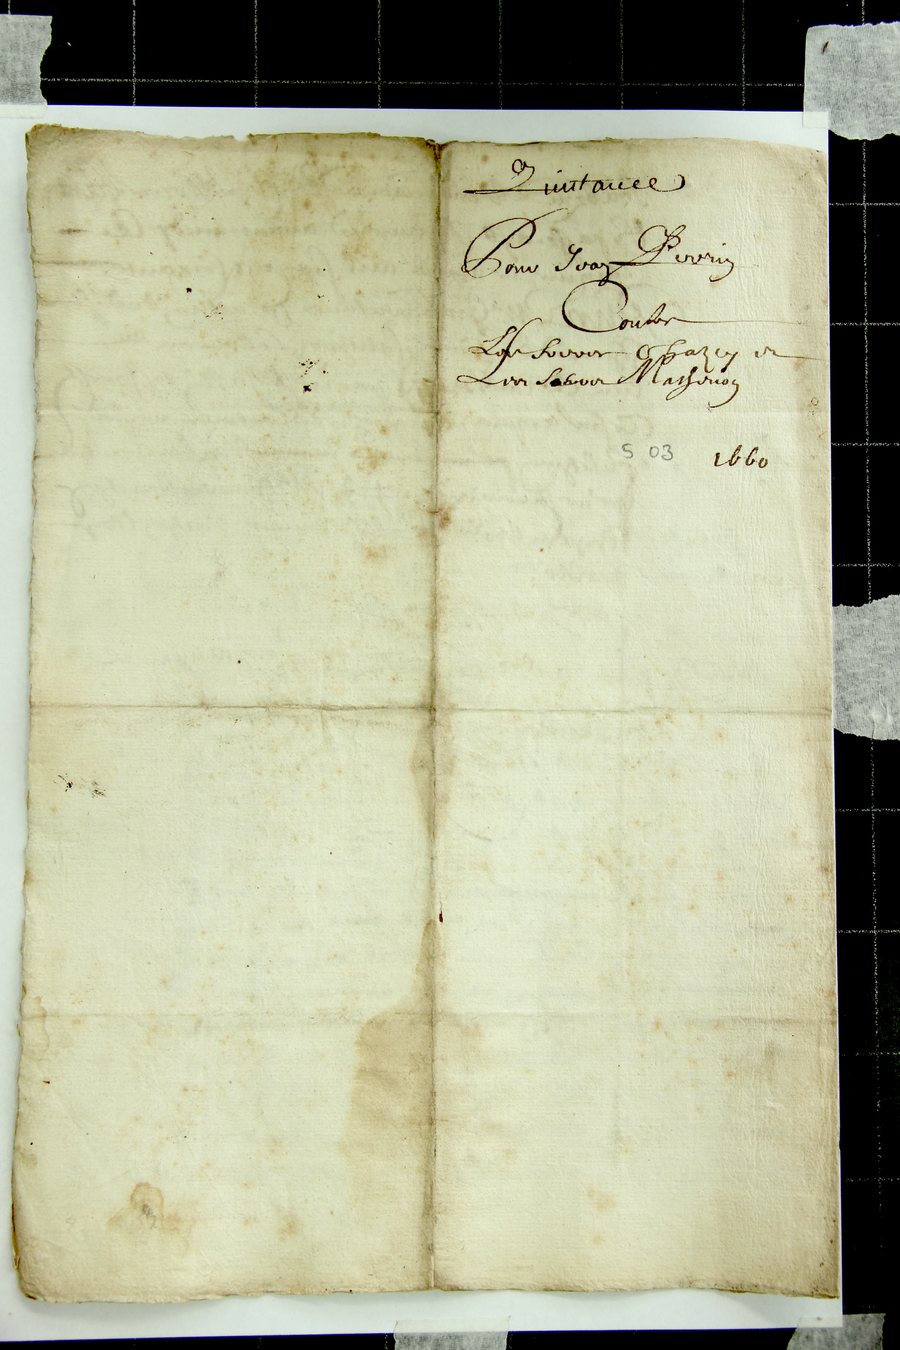 Quittance
Pour Jean Perrin
Contre
Les sieurs Chazey et
Les sieurs
S 03 1660